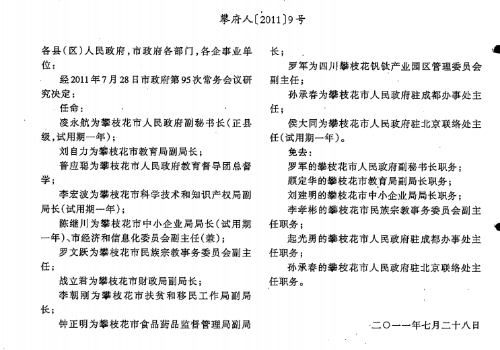 攀府人〔2011〕9号
各县(区)人民政府,市政府各部门,各企事业单
位:
经2011年7月28日市政府第95次常务会议研
究决定:
任命:
凌永航为攀枝花市人民政府副秘书长(正县
级,试用期一年);
刘自力为攀枝花市教育局副局长;
普应聪为攀枝花市人民政府教育督导团总督
学;
李宏波为攀枝花市科学技术和知识产权局副
局长(试用期一年);
陈继川为攀枝花市中小企业局局长(试用期
一年)、市经济和信息化委员会副主任(兼);
罗文跃为攀枝花市民族宗教事务委员会副主
任;
战立君为攀枝花市财政局副局长;
李朝刚为攀枝花市扶贫和移民工作局副局
长;
钟正明为攀枝花市食品药品监督管理局副局
长;
罗军为四川攀枝花钒钛产业园区管理委员会
副主任;
孙承春为攀枝花市人民政府驻成都办事处主
任;
侯大同为攀枝花市人民政府驻北京联络处主
任(试用期一年)。
免去:
罗军的攀枝花市人民政府副秘书长职务;
顾定华的攀枝花市教育局副局长职务;
刘建明的攀枝花市中小企业局局长职务;
李孝彬的攀枝花市民族宗教事务委员会副主
任职务;
起光勇的攀枝花市人民政府驻成都办事处主
任职务;
孙承春的攀枝花市人民政府驻北京联络处主
任职务。
二〇一一年七月二十八日